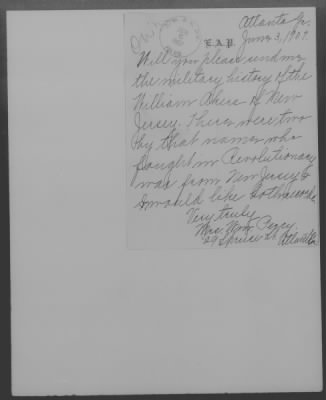 Atlanta Ga.
June 3, 1909.
E.A.P.
Will you please send me
the military history of the
William of New
Jersey. There were two
by that name who
fought in Revolutionary
war from New Jersey &
I would like both records.
Very truly
Mrs. Wm. Percy.
29 Spruce St Atlanta Ga.